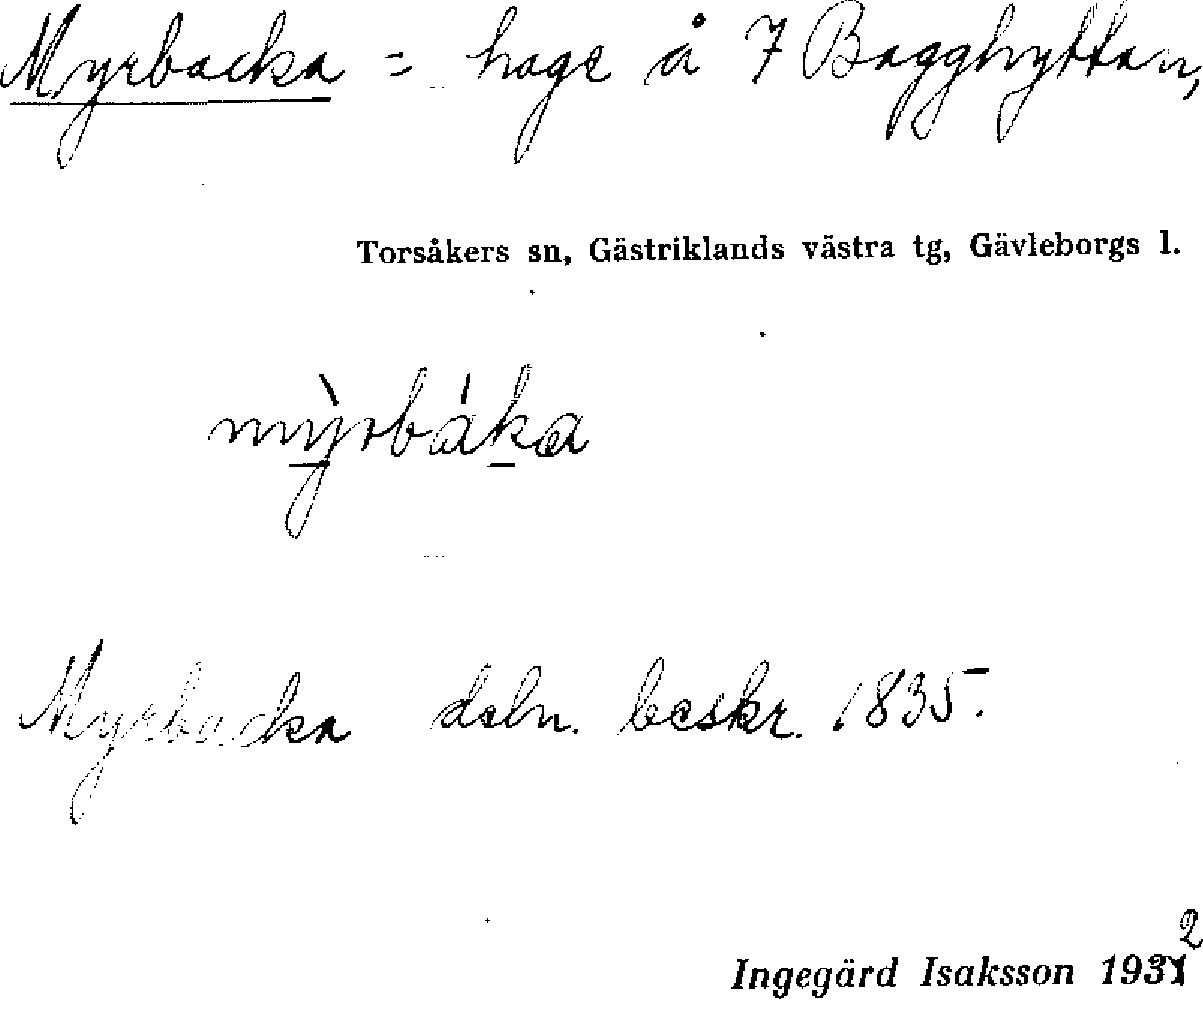 Myrbacka = hage å 7 Bagghyttan,
Torsåkers sn, Gästriklands västra tg, Gävleborgs l.
mỳrbáka
Myrbacka deln. beskr. 1835.
Ingegärd Isaksson 1932